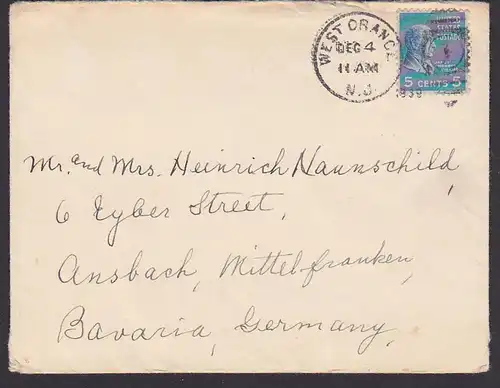 WEST ORANGE
DEC 4
11 AM
N.J.
1939
UNITED
STATES
POSTAGE
5 CENTS 5
Mr. and Mrs. Heinrich Naunschild,
6 Eyber Street,
Ansbach, Mittelfranken,
Bavaria, Germany,